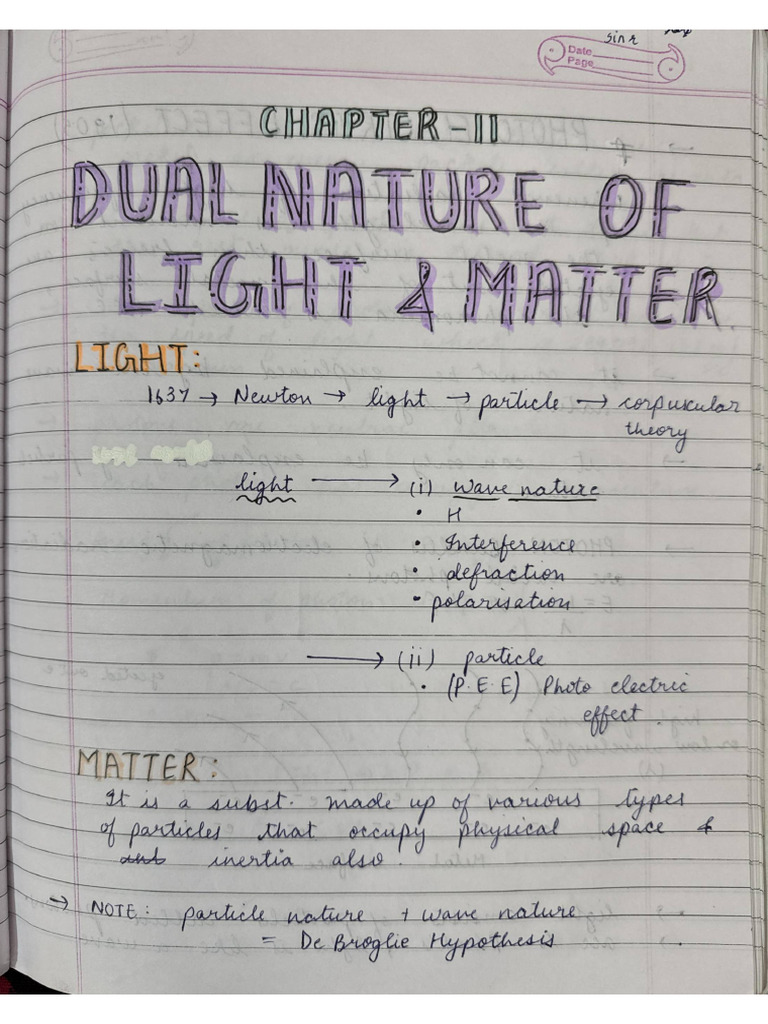 sin r
Date
Page
CHAPTER-II
DUAL NATURE OF
LIGHT & MATTER
LIGHT:
1637 → Newton → light → particle → corpuscular
theory
light → (i) wave nature
• H
• Interference
• defraction
• polarisation
→ (ii) particle
• (P.E.E) Photo electric
effect.
MATTER:
It is a subst. made up of various types
of particles that occupy physical space &
inertia also.
→ NOTE: particle nature + wave nature
= De Broglie Hypothesis.